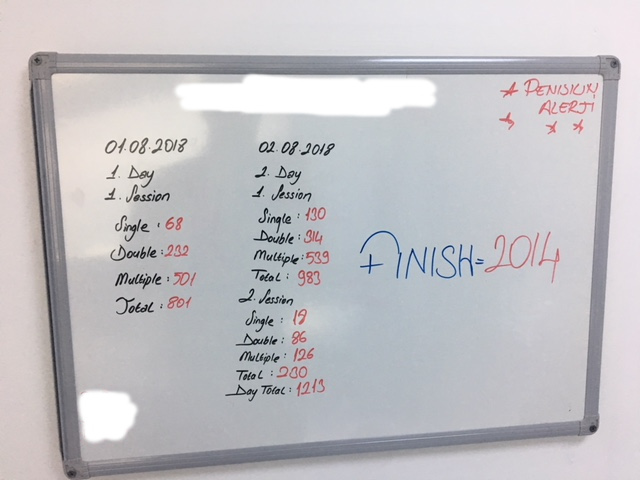 * PENISILIN
ALERJİ
01.08.2018
1. Day
1. Session
Single : 68
Double : 232
Multiple : 501
Total : 801
02.08.2018
2. Day
1. Session
Single : 130
Double : 314
Multiple : 539
Total : 983
2. Session
Single : 18
Double : 86
Multiple : 126
Total : 230
Day Total : 1213
FINISH = 2014